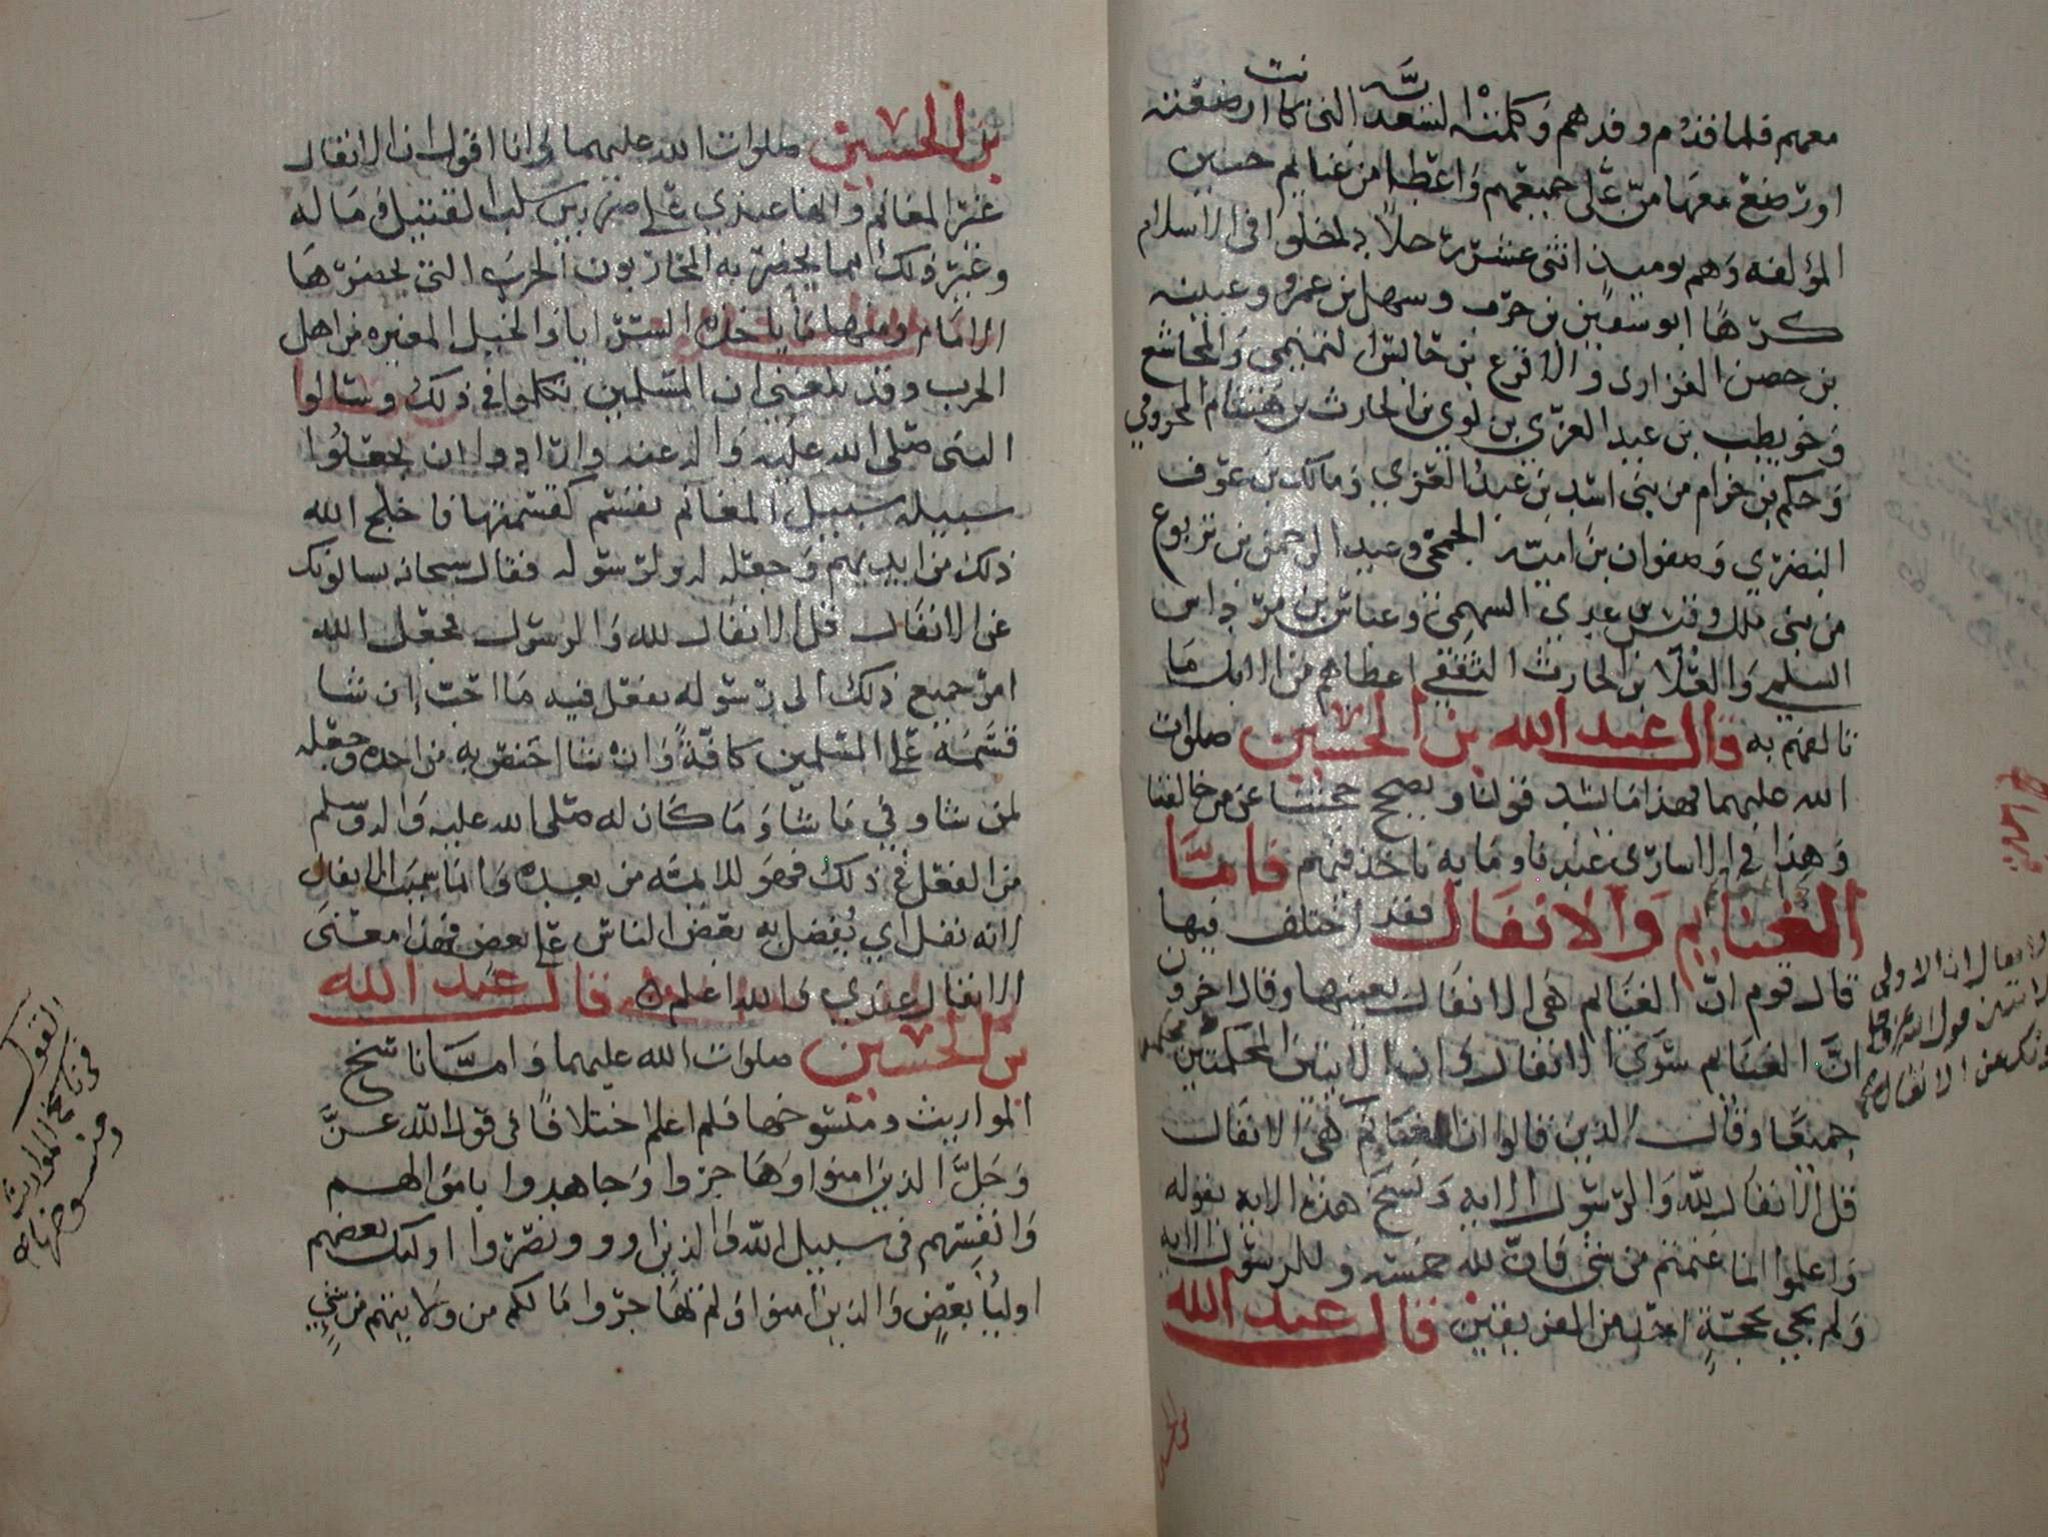 معهم فلما قدم وفدهم وكلمته السعدية التي كانت ارضعته
او رضع معها من على جميعهم واعطا من غنايم حنين
المؤلفه وهم يوميذ اثنى عشر رجلا دخلوا في الاسلام
كرها ابو سفين بن حرب وسهل بن عمرو وعيينه
بن حصن الفزارى والاقرع بن حابس التميمي والمجاشع
وحويطب بن عبد العزى بن لوى بن الحارث بن هشام المخزومي
وحكم بن حزام من بني اسد بن عبد العزى ومالك بن عوف
النضرى وصفوان بن امية الجمحي وعبد الرحمن بن يربوع
من بني ملك وقيس بن عدي السهمي وعباس بن مرداس
السلمي والعلا بن الحارث الثقفي اعطاهم من الابل ما
تالفهم به قال عبد الله بن الحسين صلوات
الله عليهما فهذا ما قولنا ويصحح حجتنا عن من خالفنا
وهذا في الاسارى عندنا وما به ناخذ فيهم فاما
الغنايم والانفال فقد اختلف فيها
قال قوم ان الغنايم هي الانفال بعينها وقال اخرون
ان الغنايم سوى الانفال وان الايتين المحكمتين محكمه
جميعا وقال الذين قالوا ان الغنايم هي الانفال
قل الانفال لله والرسول الايه ونسخ هذه الايه بقوله
واعلموا انما غنمتم من شي فان لله خمسه وللرسول الايه
ولم يجي بحجة احد من الفريقين قال عبد الله
والانفال ان الاولى
الايتين قول الله عز وجل
يسالونك عن الانفال
بن الحسين صلوات الله عليهما وانا اقول ان الانفال
غير المغانم وانها عندي على ضربين سلب القتيل وماله
وغير ذلك مما يحضر به المحاربون الحرب التي يحضرها
الامام ومنها ما ياخذه السرايا والخيل المغيره من اهل
الحرب وقد بلغني ان المسلمين تكلموا في ذلك وسالوا
النبي صلى الله عليه واله عنه وارادوا ان يجعلوا
سبيله سبيل المغانم يقسم كقسمتها فاخلج الله
ذلك من ايديهم وجعله له ولرسوله فقال سبحانه يسالونك
عن الانفال قل الانفال لله والرسول فجعل الله
امر جميع ذلك الى رسوله يفعل فيه ما احب ان شا
قسمه على المسلمين كافة وان شا اختص به من احد وجعله
لمن شا وفي ما شا وما كان له صلى الله عليه واله وسلم
من الفعل في ذلك فهو للايمه من بعده وانما سميت الانفال
لانه نفل اي يفضل به بعض الناس على بعض فهذا معنى
الانفال عندي والله اعلم قال عبد الله
بن الحسين صلوات الله عليهما واما ناسخ
المواريث ومنسوخها فلم اعلم اختلافا في قول الله عز
وجل الذين امنوا وهاجروا وجاهدوا باموالهم
وانفسهم في سبيل الله والذين اووا ونصروا اوليك بعضهم
اوليا بعض والذين امنوا ولم يهاجروا مالكم من ولايتهم من شي
القول
في ناسخ المواريث
ومنسوخها